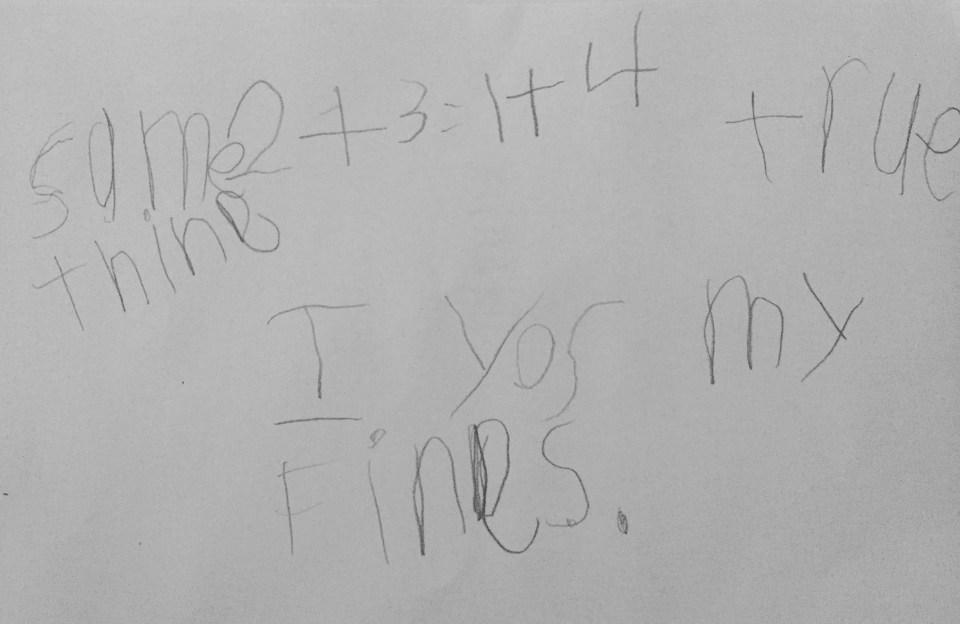 same 2+3=1+4 true
thing
I yos my
Fings.